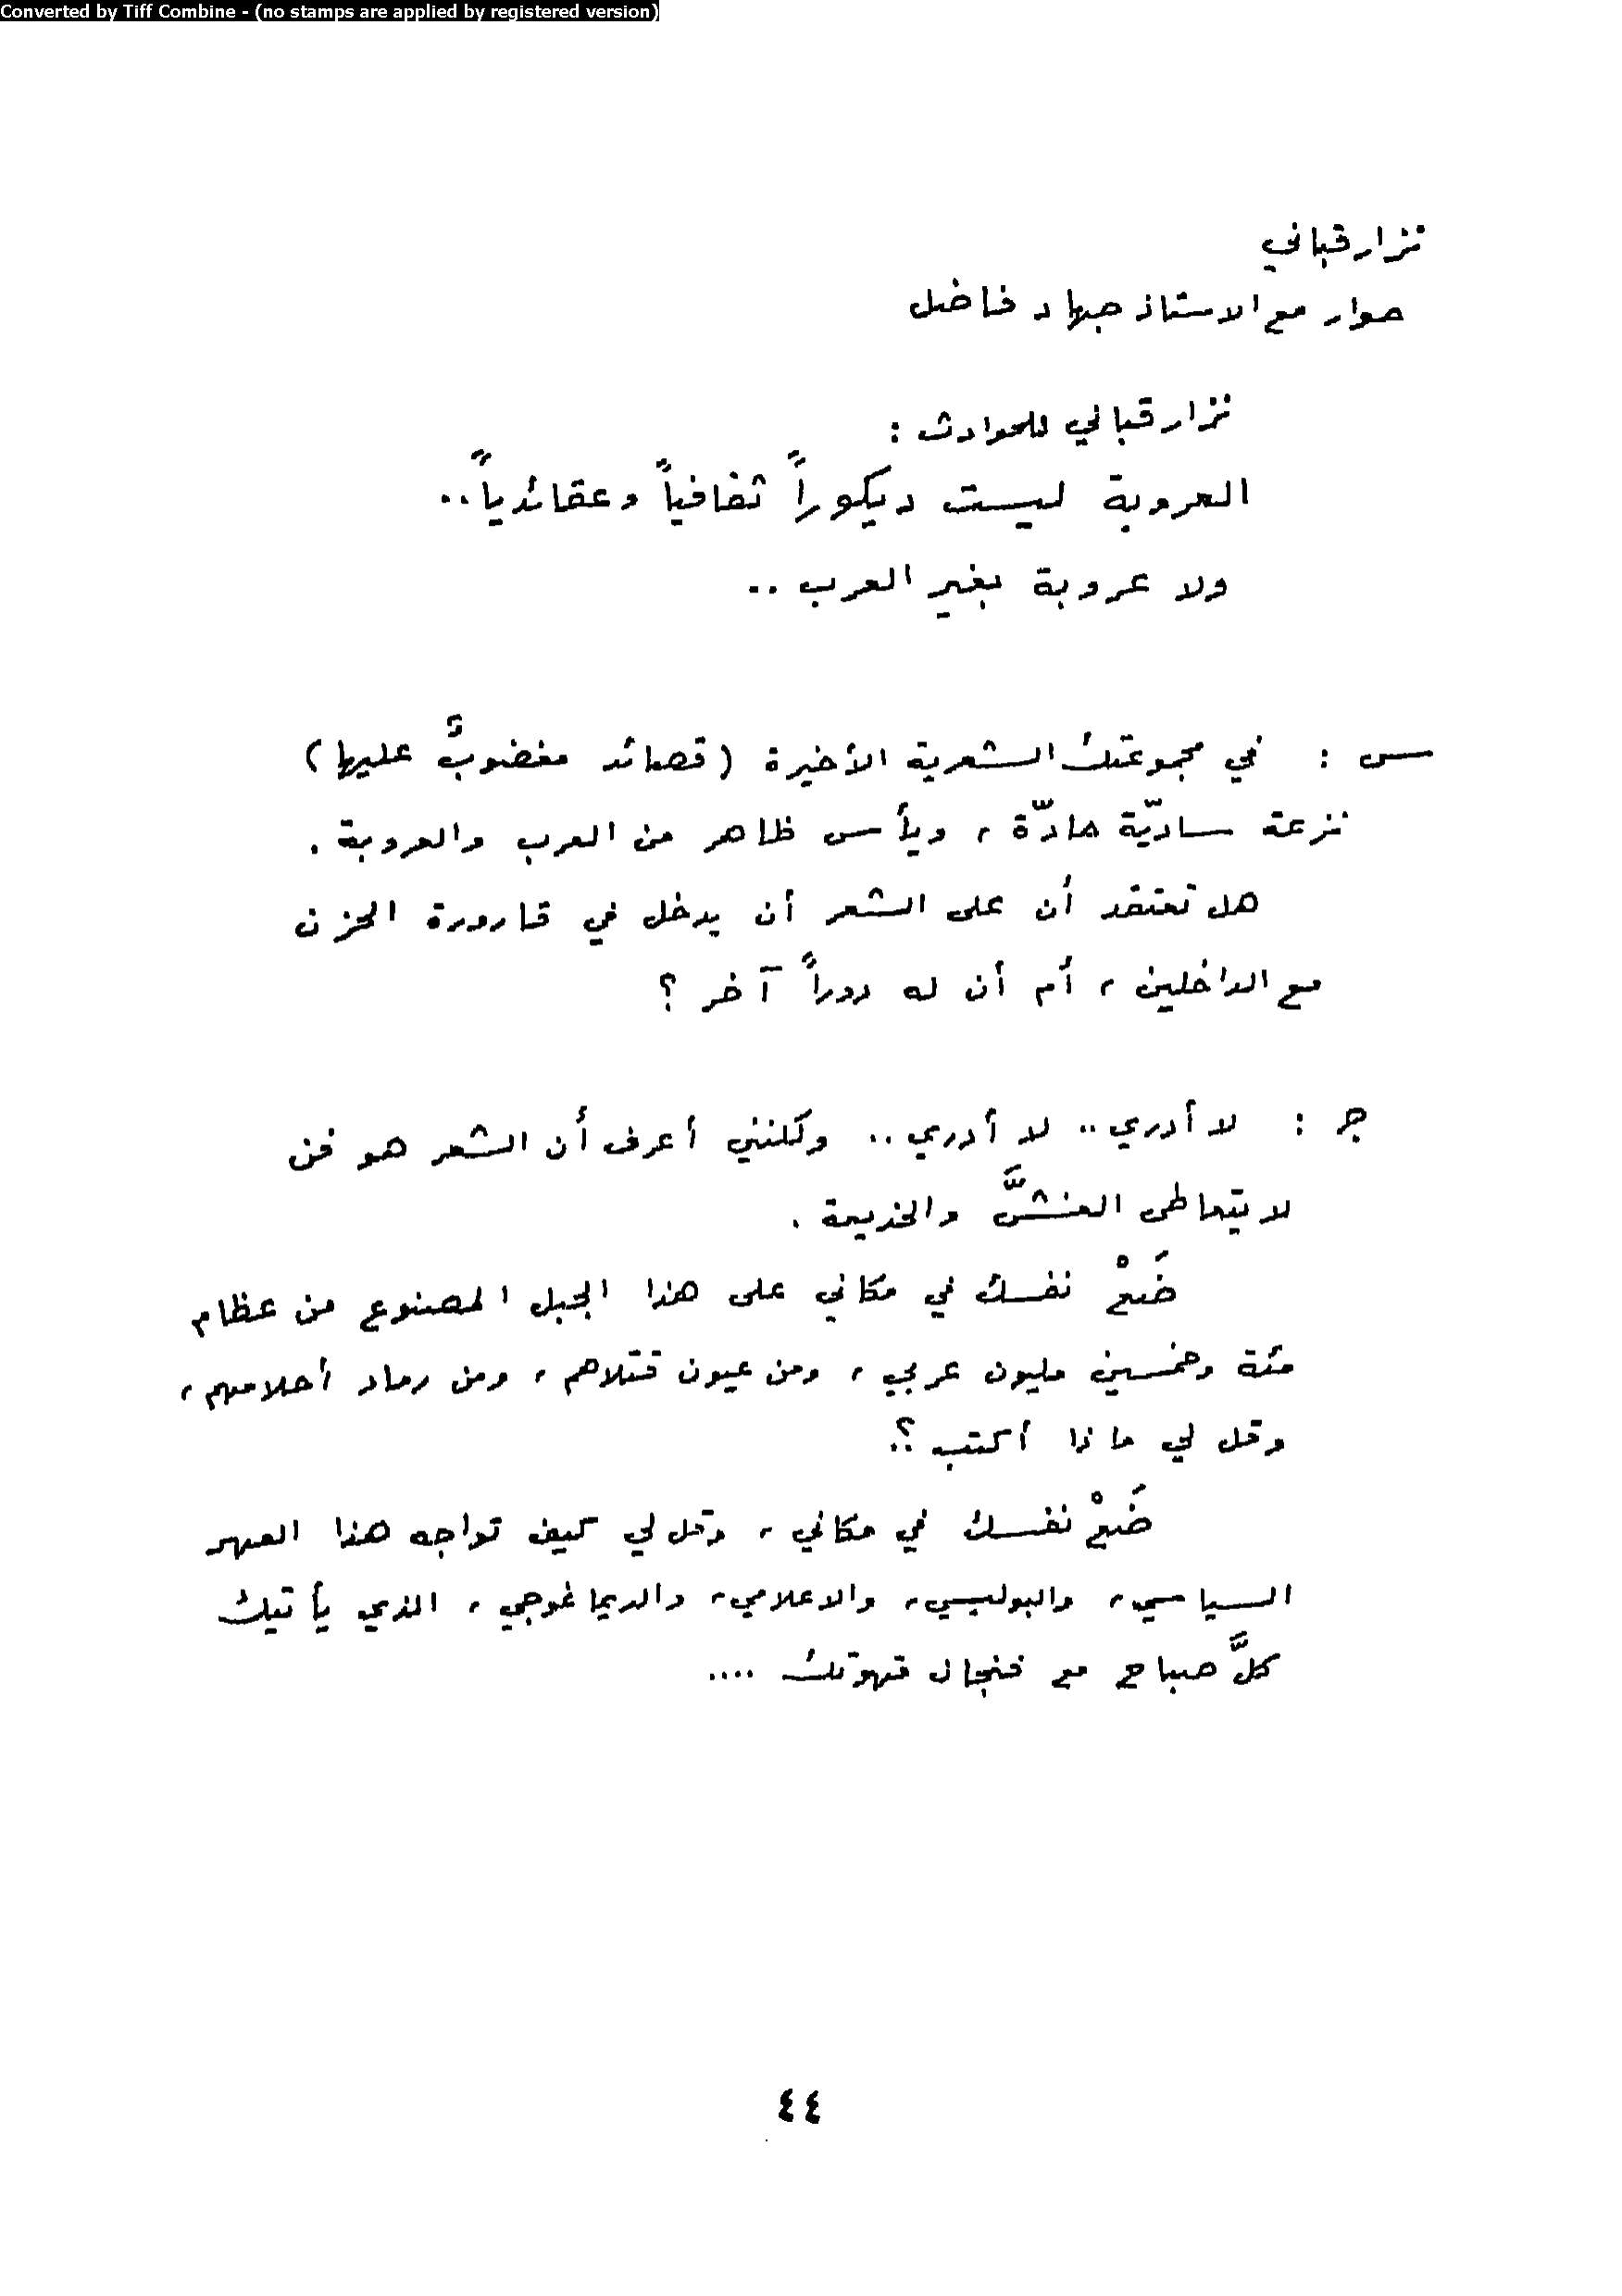 Converted by Tiff Combine - (no stamps are applied by registered version)
نزار قباني
حوار مع الاستاذ جهاد فاضل
نزار قباني للحوادث :
العروبة ليست ديكوراً ثقافياً وعقائدياً..
ولا عروبة بغير العرب ..
س : في مجموعتك الشعرية الأخيرة (قصائد مغضوبٌ عليها)
نزعة ساديّة حادّة ، ويأس ظاهر من العرب والعروبة .
هل تعتقد أن على الشعر أن يدخل في قارورة الحزن
مع الداخلين ، أم أن له دوراً آخر ؟
ج : لا أدري .. لا أدري .. ولكنني أعرف أن الشعر هو فن
لا يتعاطى الغشَّ والخديعة .
ضَعْ نفسك في مكاني على هذا الجبل المصنوع من عظام
مئة وخمسين مليون عربي ، ومن عيون قتلاهم ، ومن رماد أحلامهم ،
وقل لي ماذا أكتب ؟..
ضَعْ نفسك في مكاني ، وقل لي كيف تواجه هذا العهر
السياسي ، والبوليسي ، والاعلامي ، والديماغوجي ، الذي يأتيك
كلَّ صباح مع فنجان قهوتك ....
٤٤